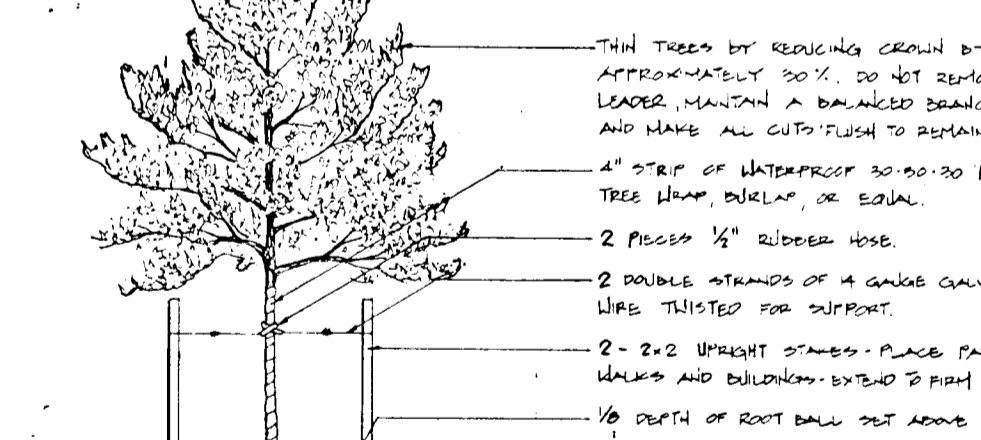 THIN TREES BY REDUCING CROWN B
APPROXIMATELY 30%. DO NOT REMO
LEADER, MANTAIN A BALANCED BRANC
AND MAKE ALL CUTS FLUSH TO REMAIN
4" STRIP OF WATERPROOF 30·30·30
TREE WRAP, BURLAP, OR EQUAL.
2 PIECES 1/2" RUBBER HOSE.
2 DOUBLE STRANDS OF 14 GAUGE GALV
WIRE TWISTED FOR SUPPORT.
2 - 2x2 UPRIGHT STAKES - PLACE PA
WALKS AND BUILDINGS - EXTEND TO FIRM
1/8 DEPTH OF ROOT BALL SET ABOVE